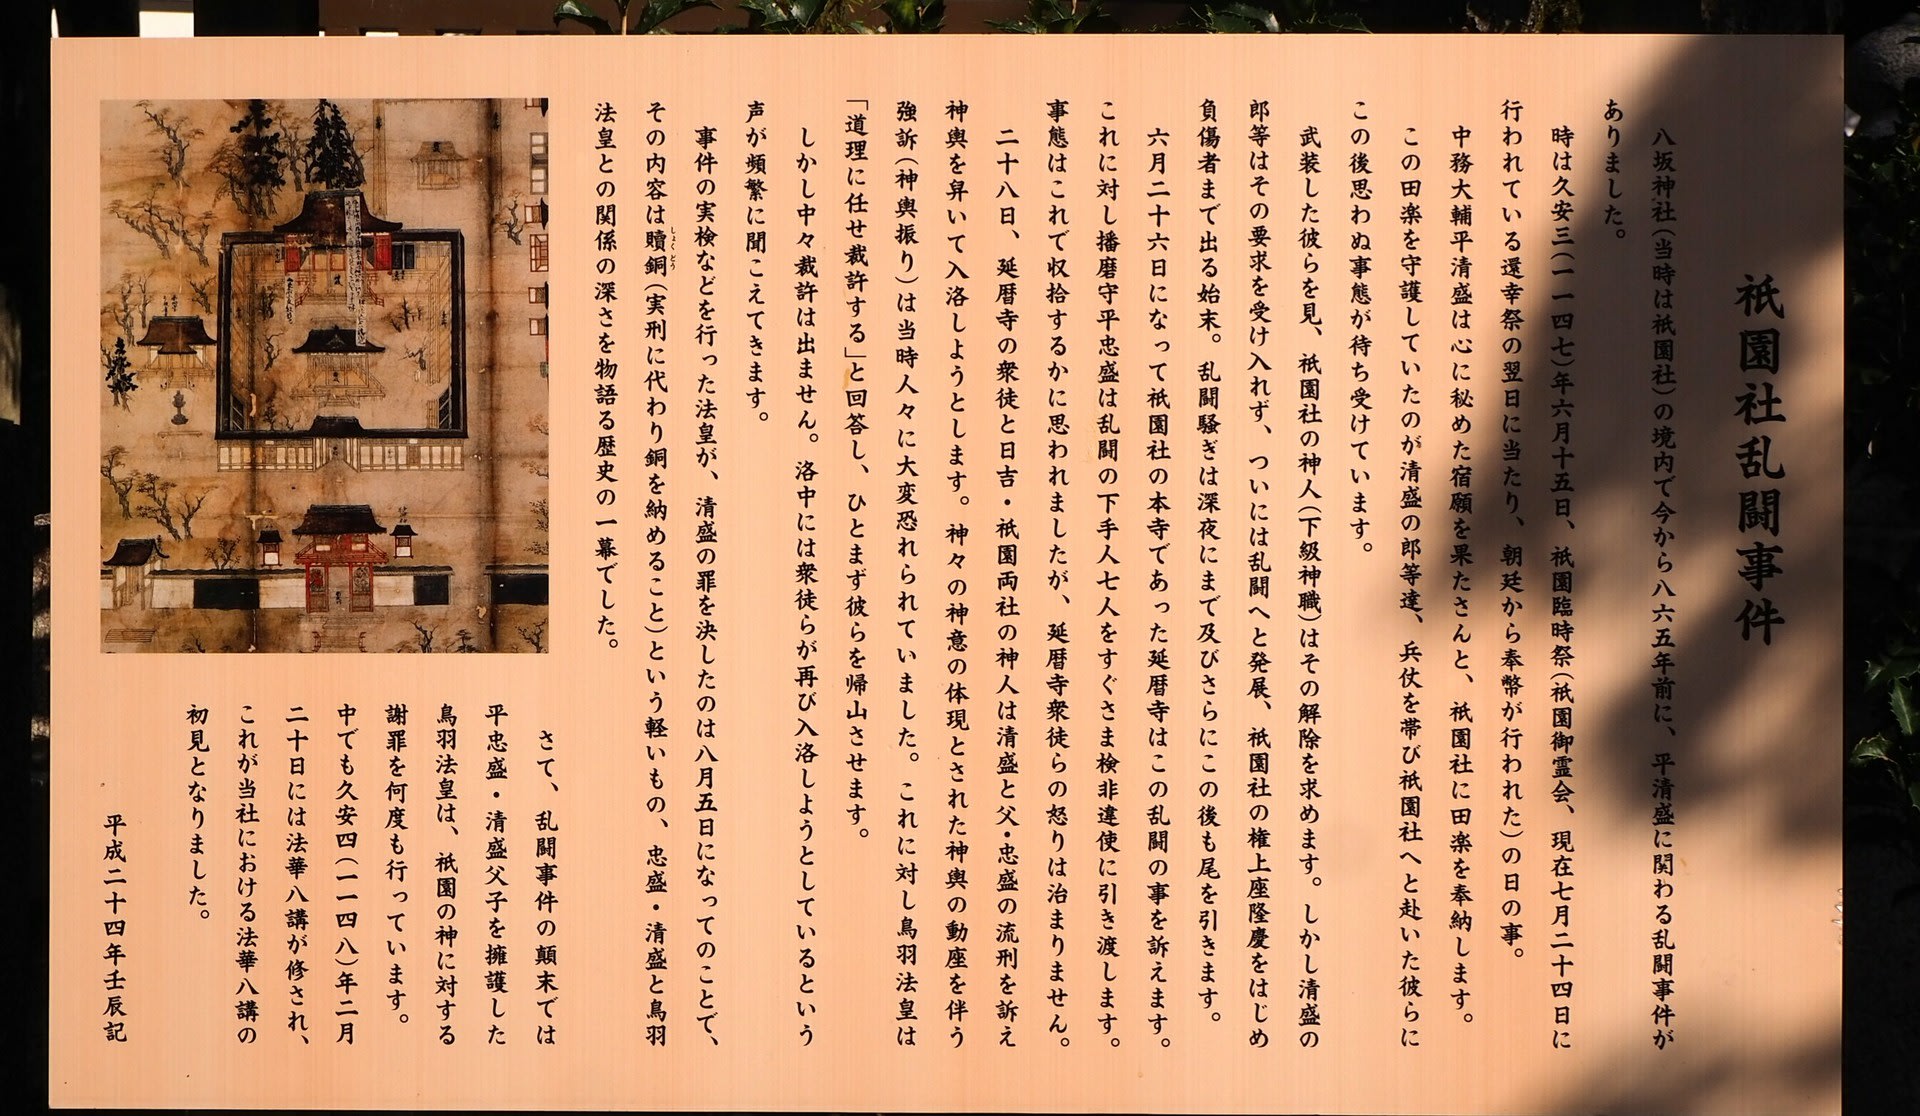 祇園社乱闘事件
八坂神社(当時は祇園社)の境内で今から八六五年前に、平清盛に関わる乱闘事件が
ありました。
時は久安三(一一四七)年六月十五日、祇園臨時祭(祇園御霊会、現在七月二十四日に
行われている還幸祭の翌日に当たり、朝廷から奉幣が行われた)の日の事。
中務大輔平清盛は心に秘めた宿願を果たさんと、祇園社に田楽を奉納します。
この田楽を守護していたのが清盛の郎等達、兵仗を帯び祇園社へと赴いた彼らに
この後思わぬ事態が待ち受けています。
武装した彼らを見、祇園社の神人(下級神職)はその解除を求めます。しかし清盛の
郎等はその要求を受け入れず、ついには乱闘へと発展、祇園社の権上座隆慶をはじめ
負傷者まで出る始末。乱闘騒ぎは深夜にまで及びさらにこの後も尾を引きます。
六月二十六日になって祇園社の本寺であった延暦寺はこの乱闘の事を訴えます。
これに対し播磨守平忠盛は乱闘の下手人七人をすぐさま検非違使に引き渡します。
事態はこれで収拾するかに思われましたが、延暦寺衆徒らの怒りは治まりません。
二十八日、延暦寺の衆徒と日吉・祇園両社の神人は清盛と父・忠盛の流刑を訴え
神輿を舁いて入洛しようとします。神々の神意の体現とされた神輿の動座を伴う
強訴(神輿振り)は当時人々に大変恐れられていました。これに対し鳥羽法皇は
「道理に任せ裁許する」と回答し、ひとまず彼らを帰山させます。
しかし中々裁許は出ません。洛中には衆徒らが再び入洛しようとしているという
声が頻繁に聞こえてきます。
事件の実検などを行った法皇が、清盛の罪を決したのは八月五日になってのことで、
その内容は贖銅(実刑に代わり銅を納めること)という軽いもの、忠盛・清盛と鳥羽
しょくどう
法皇との関係の深さを物語る歴史の一幕でした。
さて、乱闘事件の顛末では
平忠盛・清盛父子を擁護した
鳥羽法皇は、祇園の神に対する
謝罪を何度も行っています。
中でも久安四(一一四八)年二月
二十日には法華八講が修され、
これが当社における法華八講の
初見となりました。
平成二十四年壬辰記